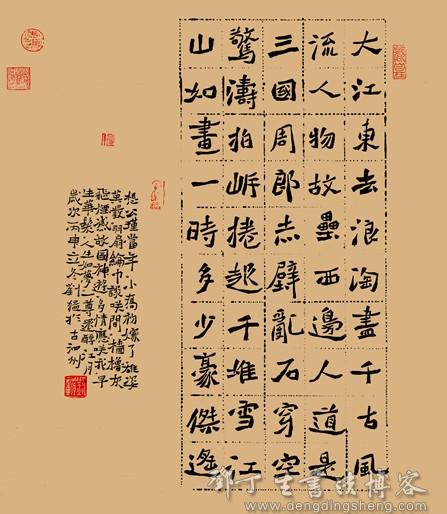 大江東去浪淘盡千古風
流人物故壘西邊人道是
三國周郎赤壁亂石穿空
驚濤拍岸捲起千堆雪江
山如畫一時多少豪傑遙
想公瑾當年小喬初嫁了雄姿
英發羽扇綸巾談笑間檣櫓灰
飛煙滅故國神遊多情應笑我早
生華髮人生如夢一尊還酹江月
歲次丙申立冬劉於古州
鄧丁生書法博客
www.dengdingsheng.com